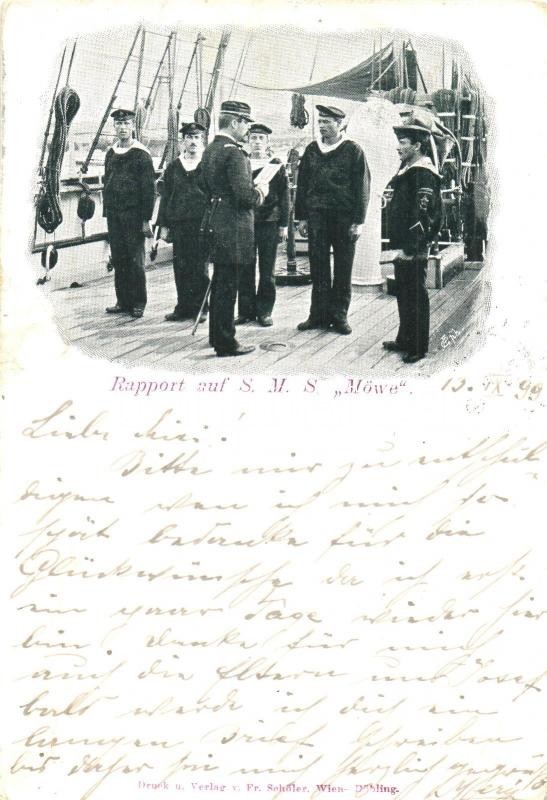 Rapport auf S. M. S. „Möwe“. 15. IX 99
Liebe Mizi!
Bitte mir zu entschul-
digen wen ich mich so
spät bedanke für die
Glückwünsche da ich erst
ein paar Tage wieder hier
bin. danke für mich
auch die Eltern und Josef
bald werde ich dir ein
langen Brief schreiben
bis daher sei mir herzlich gegrüßt
Druck u. Verlag v. Fr. Schöler, Wien-Döbling.